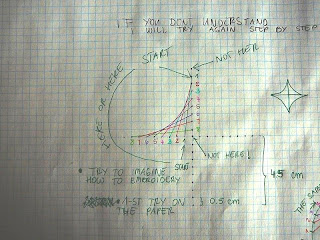 IF YOU DONT UNDERSTAND
I WILL TRY AGAIN STEP BY STEP
START
NOT HER
HERE OR HERE
START
NOT HERE!
4.5 cm
* TRY TO IMAGINE
HOW TO EMBROIDERY
1-ST TRY ON
THE PAPER
0.5 cm
THE